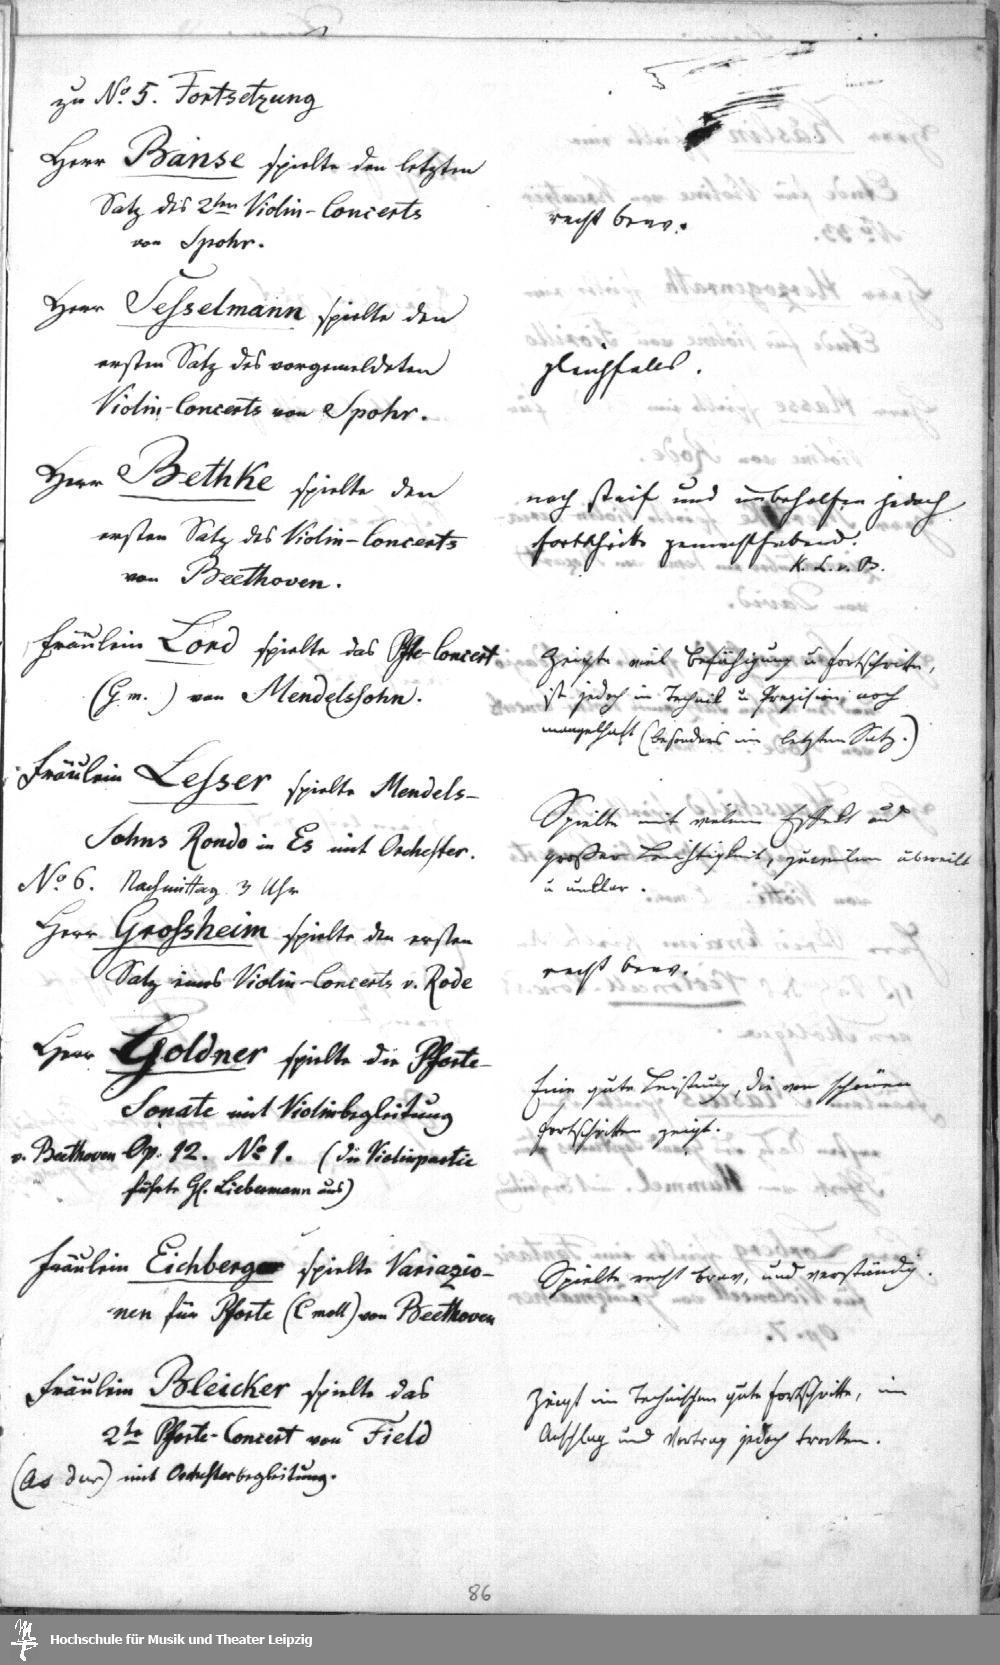 zu No. 5. Fortsetzung
Herr Banse spielte den letzten
Satz des 2ten Violin-Concerts
von Spohr.
recht brav.
Herr Sesselmann spielte den
ersten Satz des vorgemeldeten
Violin-Concerts von Spohr.
gleichfalls.
Herr Bethke spielte den
ersten Satz des Violin-Concerts
von Beethoven.
noch steif und unbeholfen jedoch
Fortschritte gemacht habend.
K. L. v. B.
Fräulein Lord spielte das Pfte-Concert
(G m.) von Mendelssohn.
Zeigte viel Befähigung u Fortschritte,
ist jedoch in Technik u Precision noch
mangelhaft (besonders im letzten Satz.)
Fräulein Lesser spielte Mendels-
sohns Rondo in Es mit Orchester.
Spielte mit vielem Effekt und
großer Leichtigkeit, zuweilen übereilt
u unklar.
No. 6. Nachmittag 3 Uhr
Herr Grossheim spielte den ersten
Satz eines Violin-Concerts v. Rode
recht brav.
Herr Goldner spielte die Pforte-
Sonate mit Violinbegleitung
v. Beethoven Op. 12. No 1. (die Violinpartie
führte H. Liebermann aus)
Eine gute Leistung, die von schönen
Fortschritten zeigt.
Fräulein Eichberger spielte Variazio-
nen für Pforte (C moll) von Beethoven
Spielte recht brav, und verständig.
Fräulein Bleicker spielte das
2te Pforte-Concert von Field
(As dur) mit Orchesterbegleitung.
Zeigt im Technischen gute Fortschritte, im
Anschlag und Vortrag jedoch trocken.
86
Hochschule für Musik und Theater Leipzig